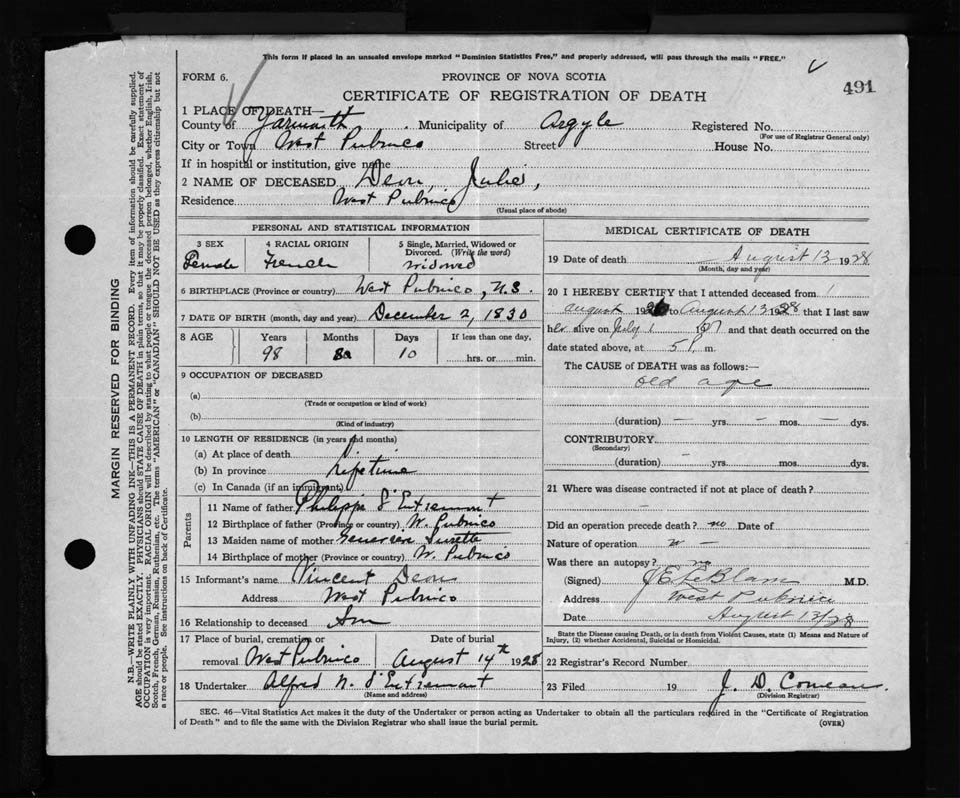 This form if placed in an unsealed envelope marked "Dominion Statistics Free," and properly addressed, will pass through the mails "FREE."
FORM 6.
PROVINCE OF NOVA SCOTIA
491
CERTIFICATE OF REGISTRATION OF DEATH
1 PLACE OF DEATH—
County of Yarmouth Municipality of Argyle Registered No.
(For use of Registrar General only)
City or Town West Pubnico Street House No.
If in hospital or institution, give name
2 NAME OF DECEASED Deon, Julie,
Residence West Pubnico
(Usual place of abode)
PERSONAL AND STATISTICAL INFORMATION
3 SEX 4 RACIAL ORIGIN 5 Single, Married, Widowed or Divorced. (Write the word)
Female French Widowed
6 BIRTHPLACE (Province or country) West Pubnico, N.S.
7 DATE OF BIRTH (month, day and year) December 2, 1830
8 AGE Years Months Days If less than one day,
98 8 10 hrs. or min.
9 OCCUPATION OF DECEASED
(a)
(Trade or occupation or kind of work)
(b)
(Kind of industry)
10 LENGTH OF RESIDENCE (in years and months)
(a) At place of death
(b) In province lifetime
(c) In Canada (if an immigrant)
Parents
11 Name of father Philippe D'Entremont
12 Birthplace of father (Province or country) W. Pubnico
13 Maiden name of mother Surette
14 Birthplace of mother (Province or country) W. Pubnico
15 Informant's name Vincent Deon
Address West Pubnico
16 Relationship to deceased Son
17 Place of burial, cremation or removal West Pubnico Date of burial August 14th 1928
18 Undertaker Alfred N. D'Entremont
(Name and address)
MEDICAL CERTIFICATE OF DEATH
19 Date of death August 12 1928
(Month, day and year)
20 I HEREBY CERTIFY that I attended deceased from 1
august 192 to August 12 1928 that I last saw
her alive on July 1 19 and that death occurred on the
date stated above, at 5 P. m.
The CAUSE of DEATH was as follows:—
old age
(duration) — yrs. — mos. — dys.
CONTRIBUTORY
(Secondary)
(duration) — yrs. — mos. — dys.
21 Where was disease contracted if not at place of death?
Did an operation precede death? no Date of
Nature of operation —
Was there an autopsy? no
(Signed) J E LeBlanc M.D.
Address West Pubnico
Date August 13/28
State the Disease causing Death, or in death from Violent Causes, state (1) Means and Nature of Injury, (2) whether Accidental, Suicidal or Homicidal.
22 Registrar's Record Number
23 Filed 19 J. D. Comeau
(Division Registrar)
SEC. 46—Vital Statistics Act makes it the duty of the Undertaker or person acting as Undertaker to obtain all the particulars required in the "Certificate of Registration
of Death" and to file the same with the Division Registrar who shall issue the burial permit. (OVER)
MARGIN RESERVED FOR BINDING
N.B.—WRITE PLAINLY WITH UNFADING INK—THIS IS A PERMANENT RECORD. Every item of information should be carefully supplied.
AGE should be stated EXACTLY. PHYSICIANS should STATE CAUSE OF DEATH in plain terms, so that it may be properly classified. Exact statement of
OCCUPATION is very important. RACIAL ORIGIN will be described by stating to what people or tongue the deceased person belonged, whether English, Irish,
Scotch, French, German, Russian, Ruthenian, etc. The terms "AMERICAN" or "CANADIAN" SHOULD NOT BE USED as they express citizenship but not
a race or people. See instructions on back of Certificate.